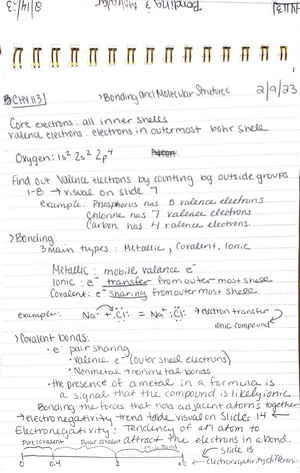 CHY 113
>Bonding and Molecular Structure
2/9/23
Core electrons: all inner shells
valence electrons: electrons in outermost bohr shell
Oxygen: 1s² 2s² 2p⁴
Find out valence electrons by counting by outside groups
1-8 → visual on slide 7
example: Phosphorus has 5 valence electrons
Chlorine has 7 valence electrons
Carbon has 4 valence electrons.
>Bonding
3 main types: Metallic, Covalent, Ionic
Metallic: mobile valence e⁻
Ionic: e⁻ transfer from outer most shell
Covalent: e⁻ sharing from outer most shell
example: Na· + ·Cl: = Na :Cl: → electron transfer
ionic compound
>Covalent bonds:
• e⁻ pair sharing
• valence e⁻ (outer shell electrons)
• Nonmetal + nonmetal bonds
• the presence of a metal in a formula is
a signal that the compound is likely ionic
Bonding: the forces that hold adjacent atoms together
→ electronegativity trend table visual on Slide 14
Electronegativity: Tendency of an atom to
attract the electrons in a bond.
pure covalent
polar covalent
ionic bond
slide 15
0 0.4 2 4.0
electronegativity difference